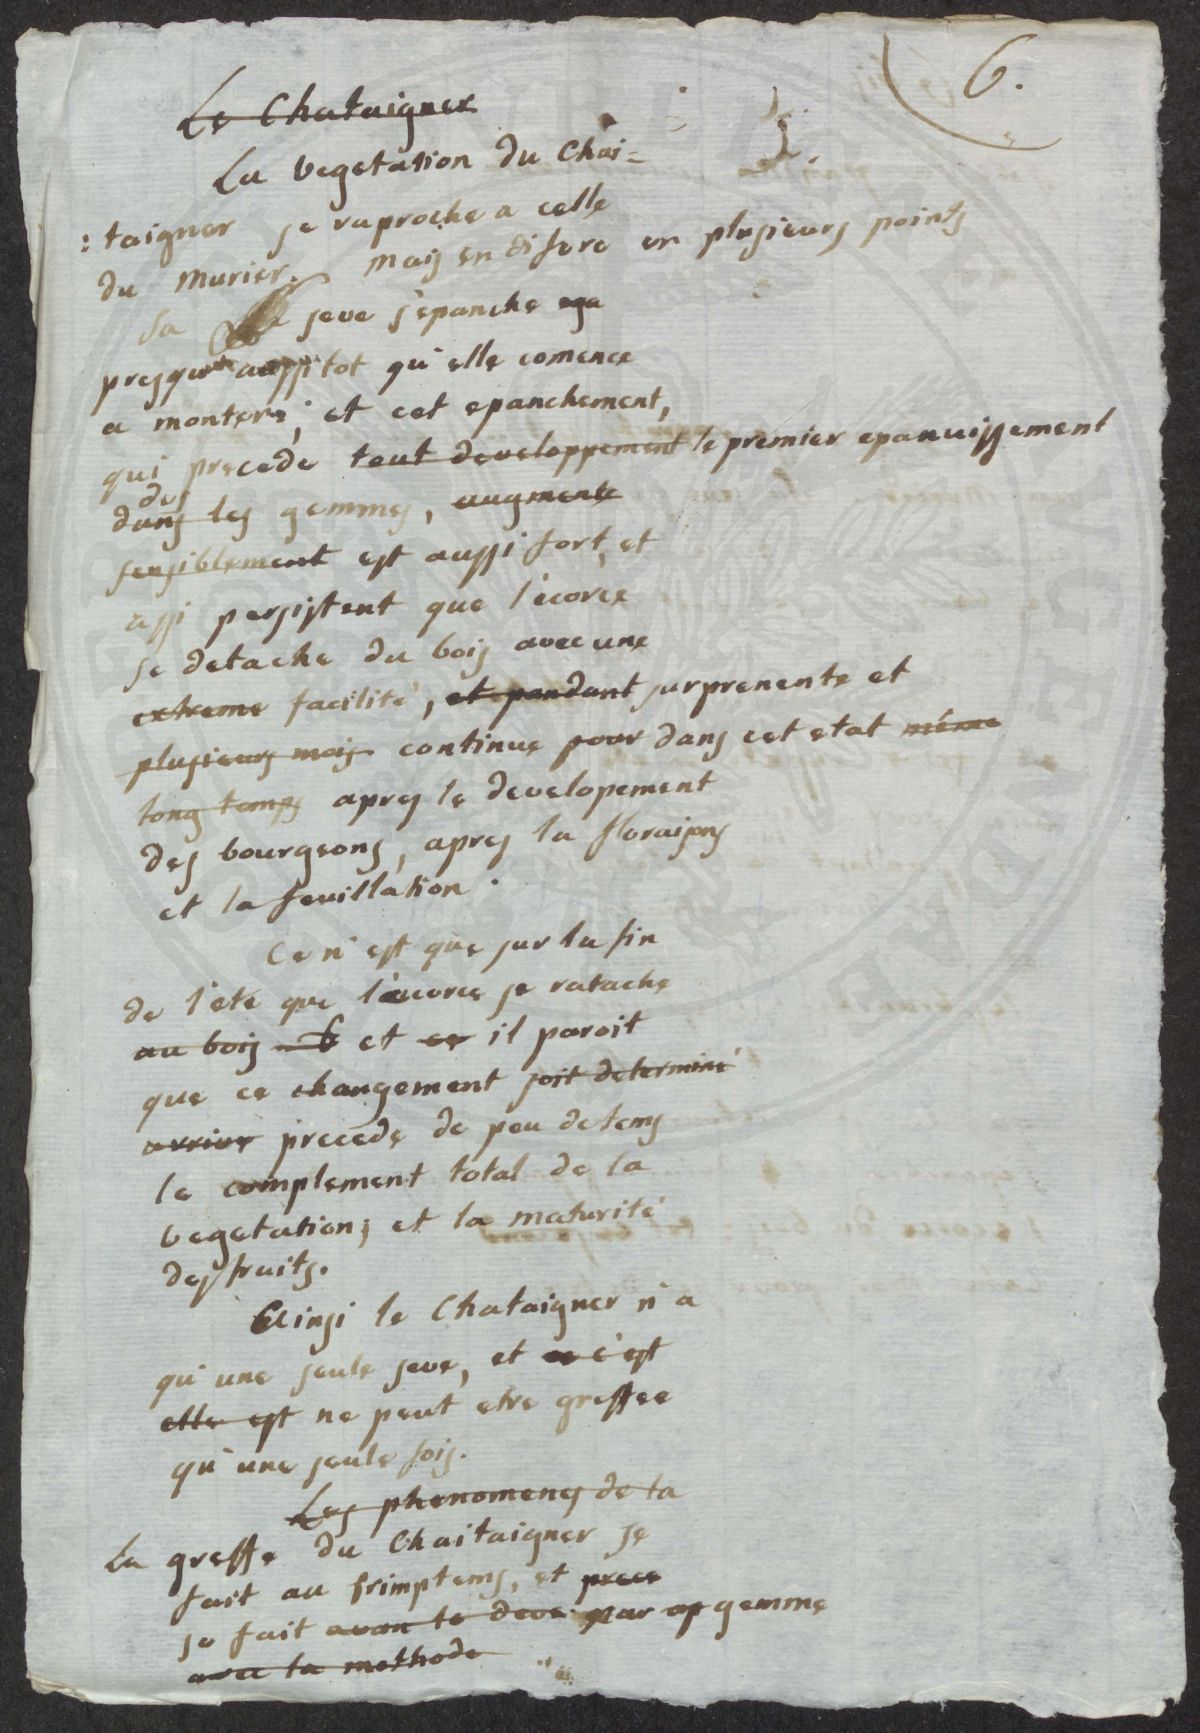 6.
Le Chataigner
La vegetation du Chai=
:taigner se raproche a celle
du murier. mais en difere en plusieurs points
Sa seve s'epanche
presque aussitot qu'elle comence
a monter; et cet epanchement,
qui precede tout developpement le premier epanuissement
des
dans les gemmes, augmente
sensiblement est aussi fort, et
assi persistent que l'ecorce
se detache du bois avec une
extreme facilité, et pandant surprenente et
plusieurs mois continue pour dans cet etat même
long temps apres le developement
des bourgeons, apres la floraison
et la feuillation.
Ce n'est que sur la fin
de l'eté que l'ecorce se ratache
au bois et ce il paroit
que ce changement soit determiné
arrive precede de peu de tems
le complement total de la
vegetation; et la maturité
des fruits.
Ainsi le Chataigner n'a
qu'une seule seve, et c'est
elle est ne peut etre greffee
qu'une seule fois.
Les phenomenes de la
La greffe du Chaitaigner se
fait au printems, et prece
se fait avan le deve par gemme
avec la methode